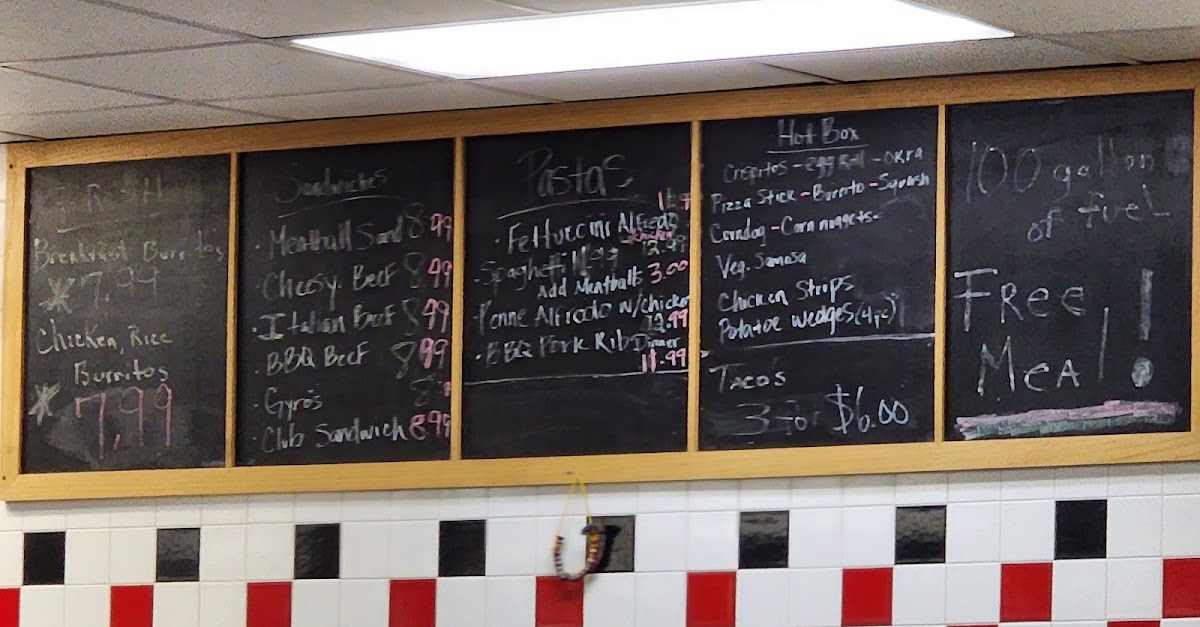 Breakfast Burritos
* 7.99
Chicken, Rice
Burritos
* 7,99
Sandwiches
· Meatball Sand 8.99
· Cheesy Beef 8.99
· Italian Beef 8.99
· BBQ Beef 8.99
· Gyro's
· Club Sandwich 8.99
Pastas
· Fettuccini Alfredo
12.99
· Spaghetti 11.99
Add Meatballs 3.00
· Penne Alfredo w/chicken
12.99
· BBQ Pork Rib Dinner
11.99
Hot Box
Crispitos - egg Roll - OKRA
Pizza Stick - Burrito - Squash
Corndog - Corn nuggets -
Veg. Samosa
Chicken Strips
Potatoe Wedges (4pc)
Tacos
3 for $6.00
100 gallon
of fuel
Free
Meal!